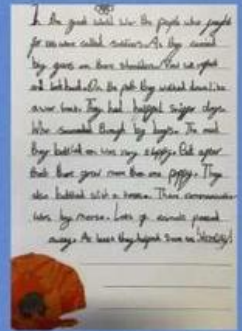 In the great world war the people who fought
for us were called soldiers. As they carried
big guns on their shoulders. Now we repect
and look back. On the path they walked down like
a war hero. They had helpful sniper dogs.
Who scounded through big bogs. The mud
they battled on was very slippy. But after
that there grew more than one poppy. They
also battled with a horse. Their communication
was by morse. Lots of animals passed
away. As least they helped them on